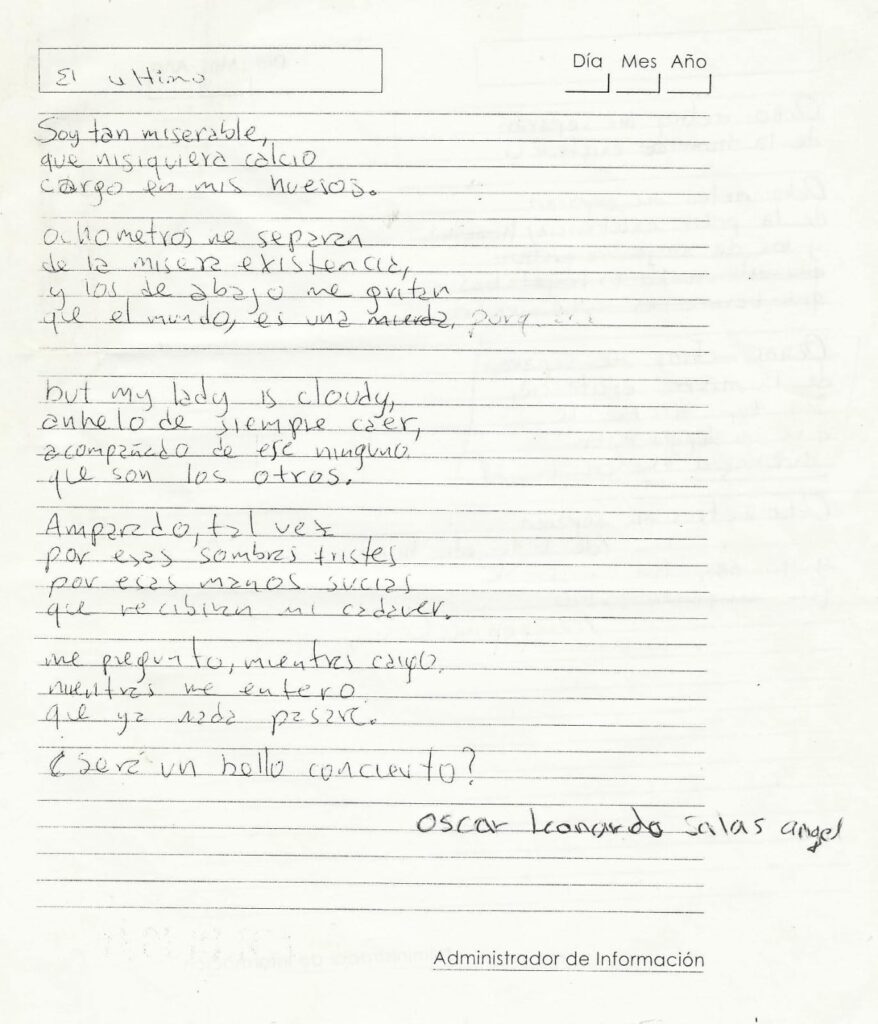 El ultimo
Día Mes Año
Soy tan miserable,
que nisiquiera calcio
cargo en mis huesos.
ocho metros me separan
de la misera existencia,
y los de abajo me gritan
que el mundo, es una mierda, porq
but my lady is cloudy,
anhelo de siempre caer,
acompañado de ese ninguno
que son los otros.
Amparado, tal vez
por esas sombras tristes
por esas manos sucias
que recibiran mi cadaver.
me pregunto, mientras caigo.
mientras me entero
que ya nada pasará.
¿Será un bello concierto?
Oscar Leonardo Salas angel
Administrador de Información